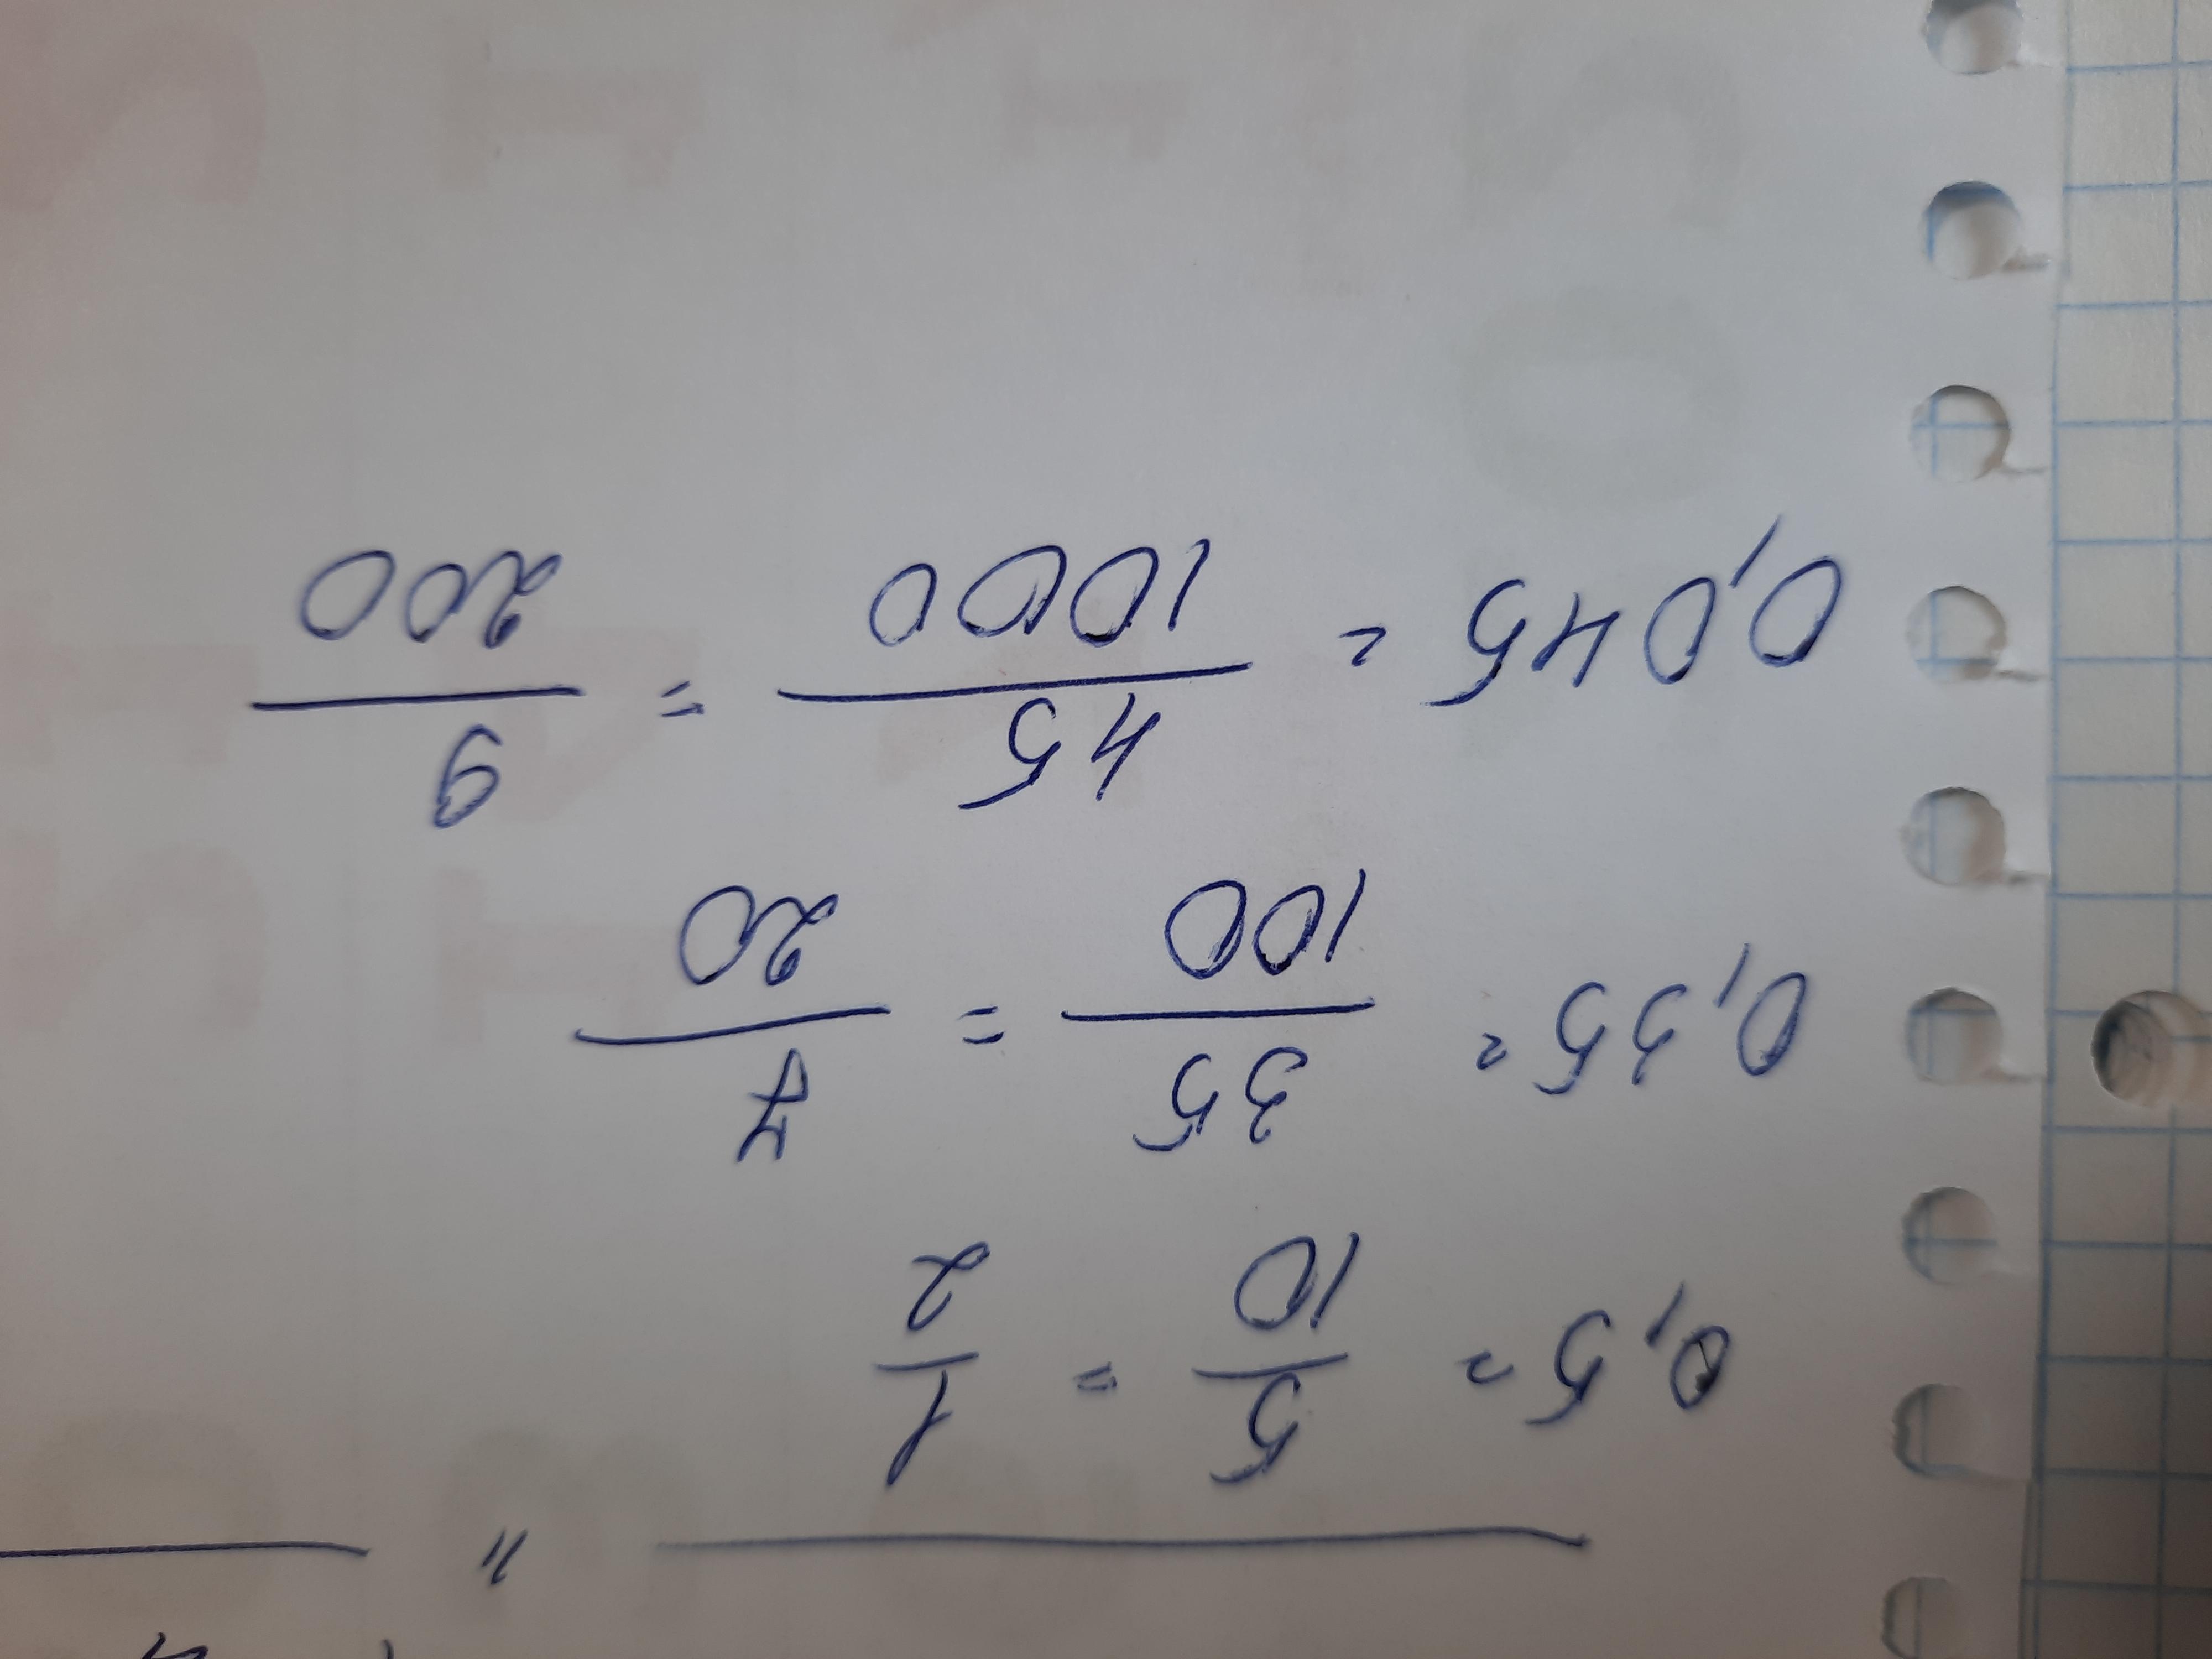 0,5 = 5/10 = 1/2
0,35 = 35/100 = 7/20
0,045 = 45/1000 = 9/200